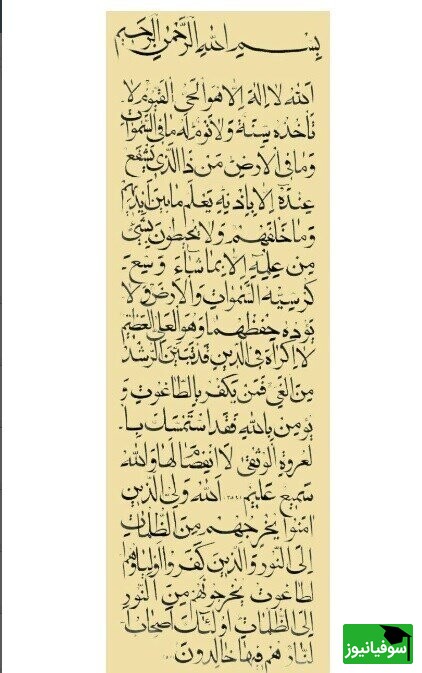 بِسْمِ اللهِ الرَّحْمنِ الرَّحِيمِ
اَللهُ لا اِلهَ اِلا هُوَ الْحَیُّ الْقَیُّومُ لا
تَاْخُذُهُ سِنَةٌ وَلا نَوْمٌ لَهُ ما فِی السَّمواتِ
وَما فِی الْاَرْضِ مَنْ ذَا الَّذی یَشْفَعُ
عِنْدَهُ اِلا بِاِذْنِهِ یَعْلَمُ ما بَیْنَ اَیْدیهِمْ
وَما خَلْفَهُمْ وَلا یُحیطُونَ بِشَیْءٍ
مِنْ عِلْمِهِ اِلا بِما شاءَ وَسِعَ
کُرْسِیُّهُ السَّمواتِ وَالْاَرْضَ وَلا
یَؤُدُهُ حِفْظُهُما وَهُوَ الْعَلِیُّ الْعَظیمُ
لا اِکْراهَ فِی الدّینِ قَدْ تَبَیَّنَ الرُّشْدُ
مِنَ الْغَیِّ فَمَنْ یَکْفُرْ بِالطّاغُوتِ وَ
یُؤْمِنْ بِاللهِ فَقَدِ اسْتَمْسَكَ بِا
لْعُرْوَةِ الْوُثْقی لَا انْفِصامَ لَها وَاللهُ
سَمیعٌ عَلیمٌ اَللهُ وَلِیُّ الَّذینَ
امَنُوا یُخْرِجُهُمْ مِنَ الظُّلُماتِ
اِلَی النُّورِ وَالَّذینَ کَفَرُوا اَوْلِیاؤُهُمُ
الطّاغُوتُ یُخْرِجُونَهُمْ مِنَ النُّورِ
اِلَی الظُّلُماتِ اُولئِكَ اَصْحابُ ا
لنّارِ هُمْ فیها خالِدُونَ
سوفیانیوز